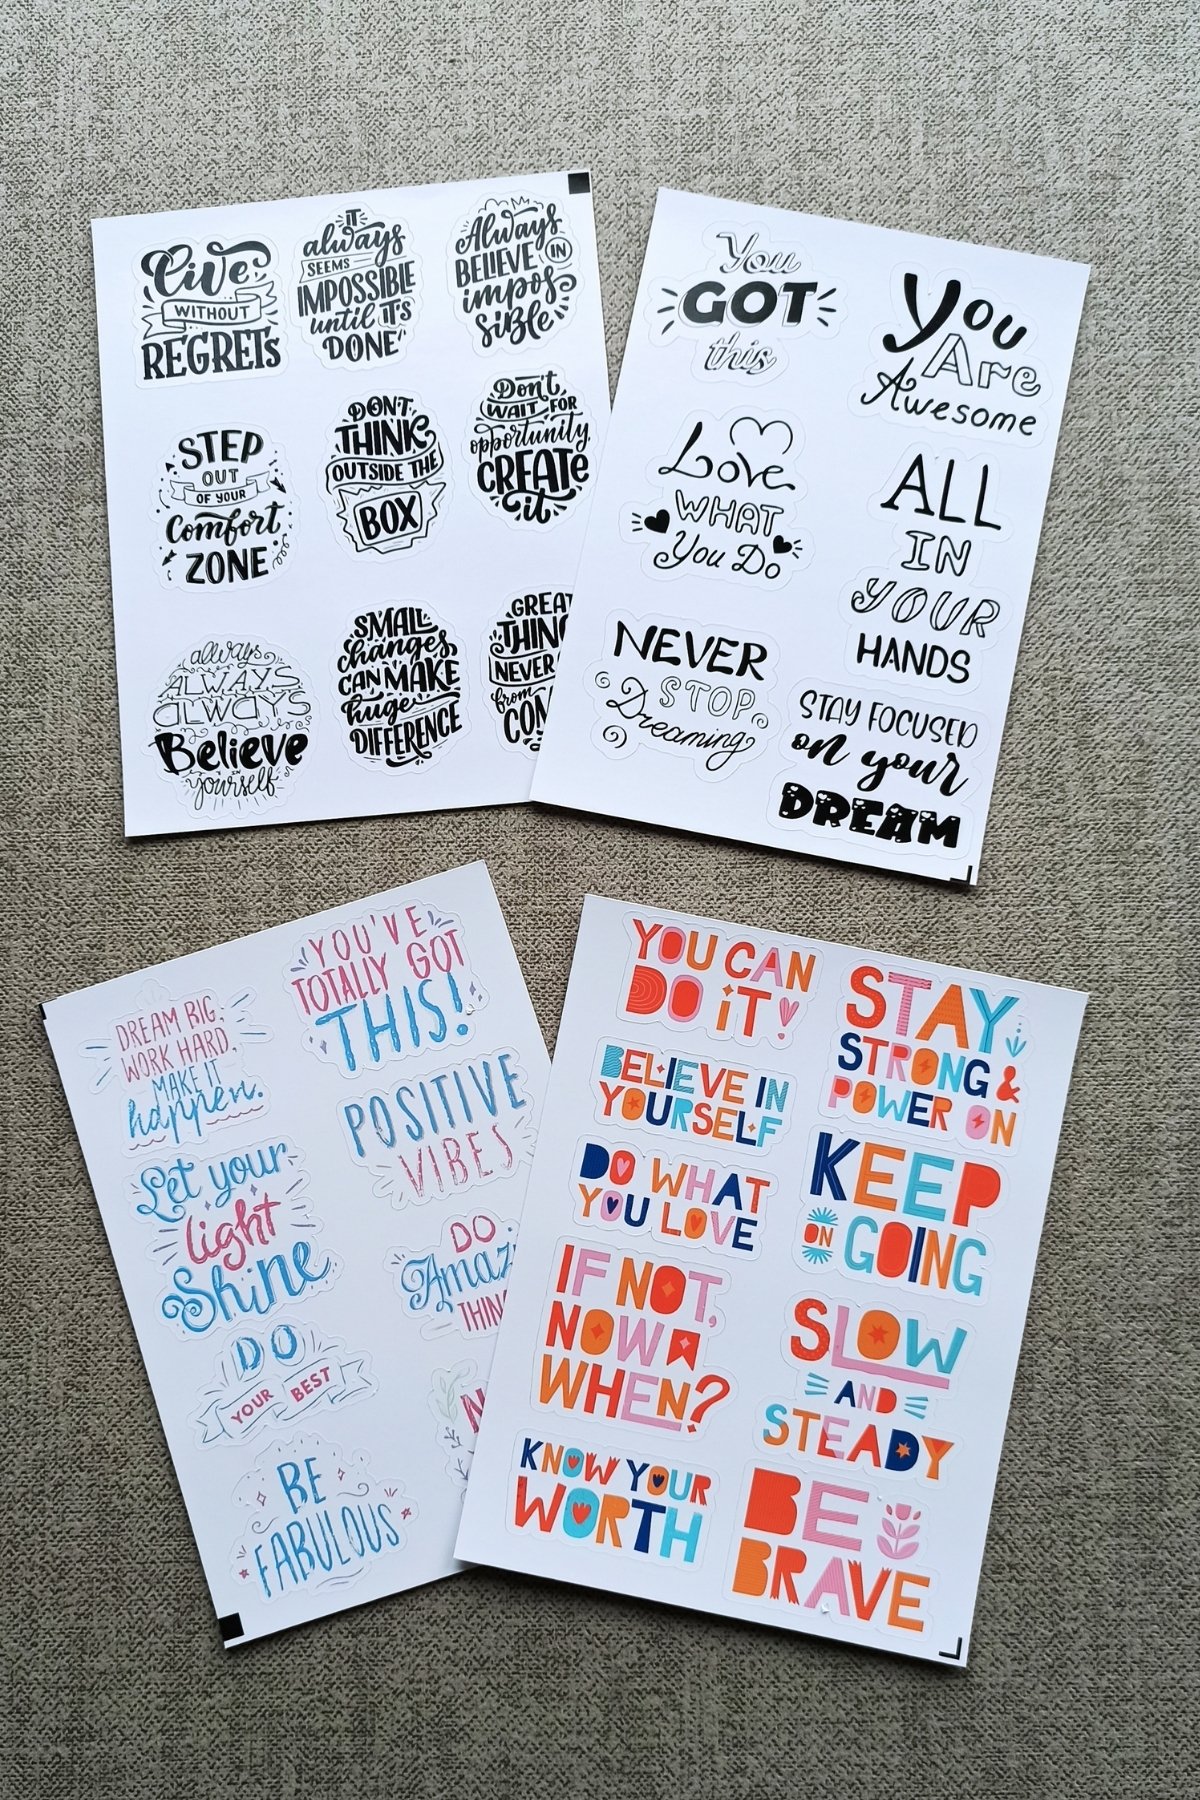 Live
WITHOUT
REGRETS
IT
always
SEEMS
IMPOSSIBLE
until IT'S
DONE
Always
BELIEVE IN
impos
sible
STEP
OUT
OF YOUR
Comfort
ZONE
DON'T
THINK
OUTSIDE THE
BOX
Don't
WAIT FOR
opportunity,
CREATE
it
always
ALWAYS
always
Believe
IN
yourself
SMALL
changes
CAN MAKE
huge
DIFFERENCE
GREAT
THIN
NEVER
from
COM
You
GOT
this
You
Are
Awesome
Love
WHAT
You Do
ALL
IN
YOUR
HANDS
NEVER
STOP
Dreaming
STAY FOCUSED
on your
DREAM
DREAM BIG,
WORK HARD,
MAKE IT
happen.
YOU'VE
TOTALLY GOT
THIS!
Let your
light
Shine
POSITIVE
VIBES
DO
YOUR BEST
DO
Amaz
THING
BE
FABULOUS
N
YOU CAN
DO iT!
STAY
STRONG &
POWER ON
BELIEVE IN
YOURSELF
DO WHAT
YOU LOVE
KEEP
ON GOING
IF NOT,
NOW
WHEN?
SLOW
AND
STEADY
KNOW YOUR
WORTH
BE
BRAVE